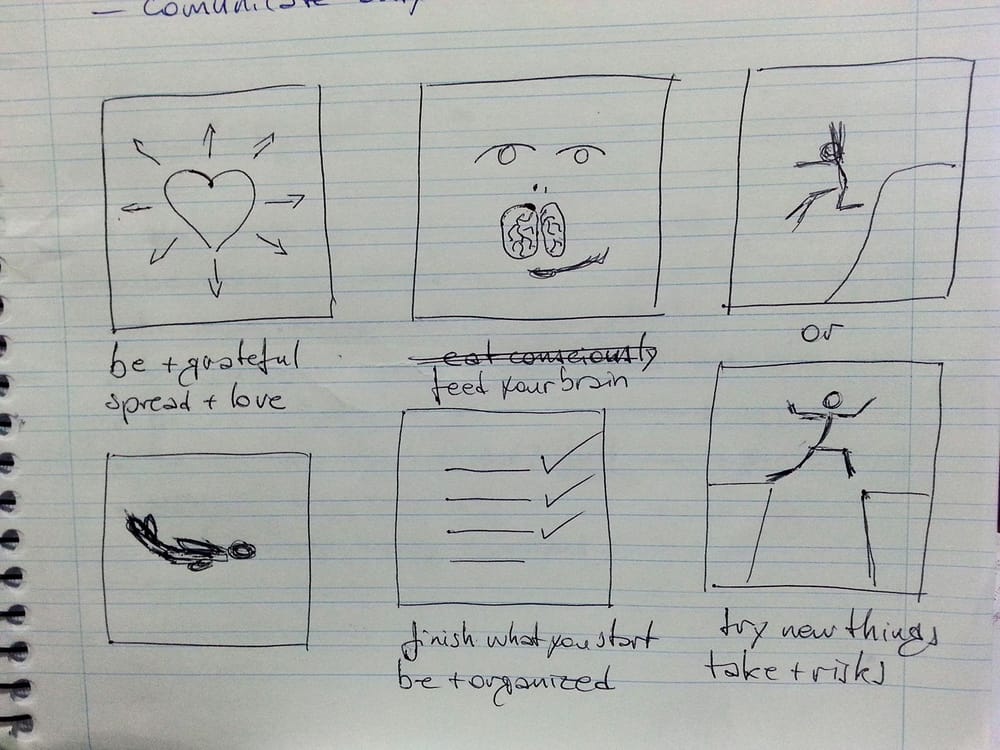 — Comunicate only
be + grateful
spread + love
eat consciously
feed your brain
or
finish what you start
be + organized
try new things
take + risks